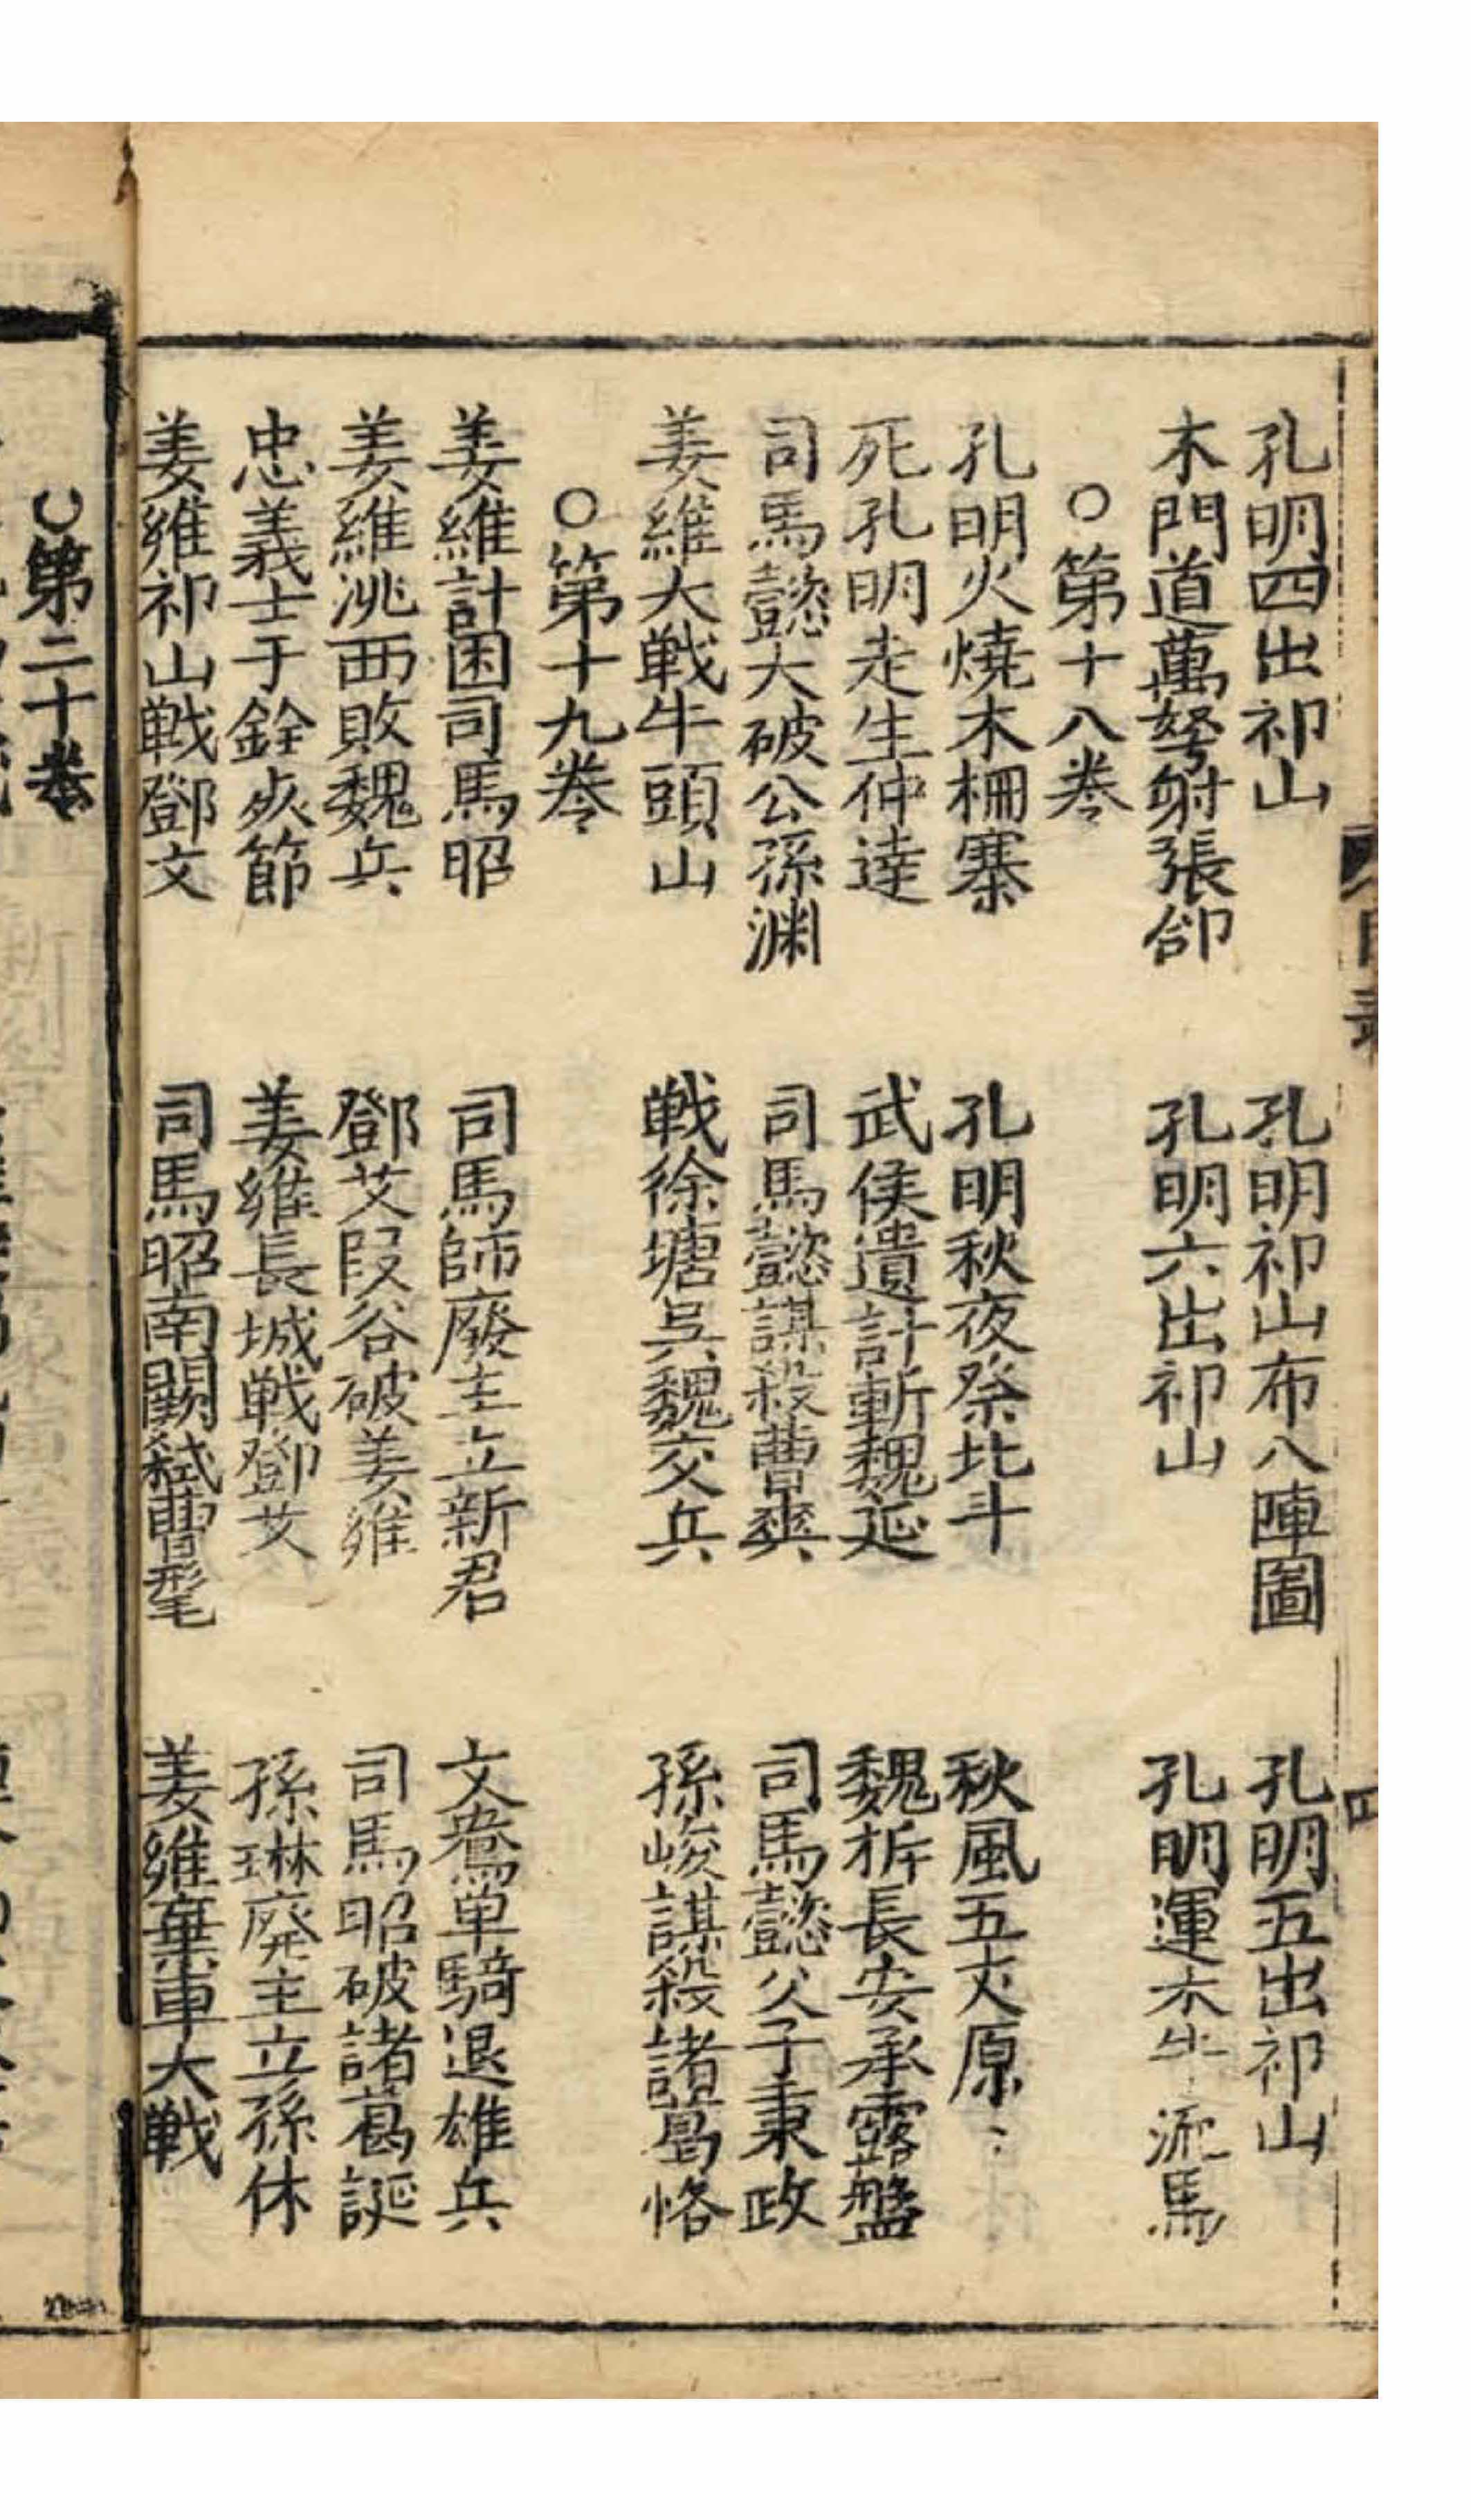 孔明四出祁山　孔明祁山布八陣圖　孔明五出祁山
木門道萬弩射張郃　孔明六出祁山　孔明運木牛流馬
○第十八巻
孔明火燒木柵寨　孔明秋夜祭北斗　秋風五丈原
死孔明走生仲達　武侯遺計斬魏延　魏拆長安承露盤
司馬懿大破公孫渊　司馬懿謀殺曹爽　司馬懿父子秉政
姜維大戦牛頭山　戦徐塘吳魏交兵　孫峻謀殺諸葛恪
○第十九巻
姜維計困司馬昭　司馬師廢主立新君　文鴦单騎退雄兵
姜維洮西敗魏兵　鄧艾段谷破姜維　司馬昭破諸葛誕
忠義士于銓死節　姜維長城戦鄧艾　孫琳廃主立孫休
姜維祁山戦鄧艾　司馬昭南闕弑曹髦　姜維棄車大戦
○第二十巻